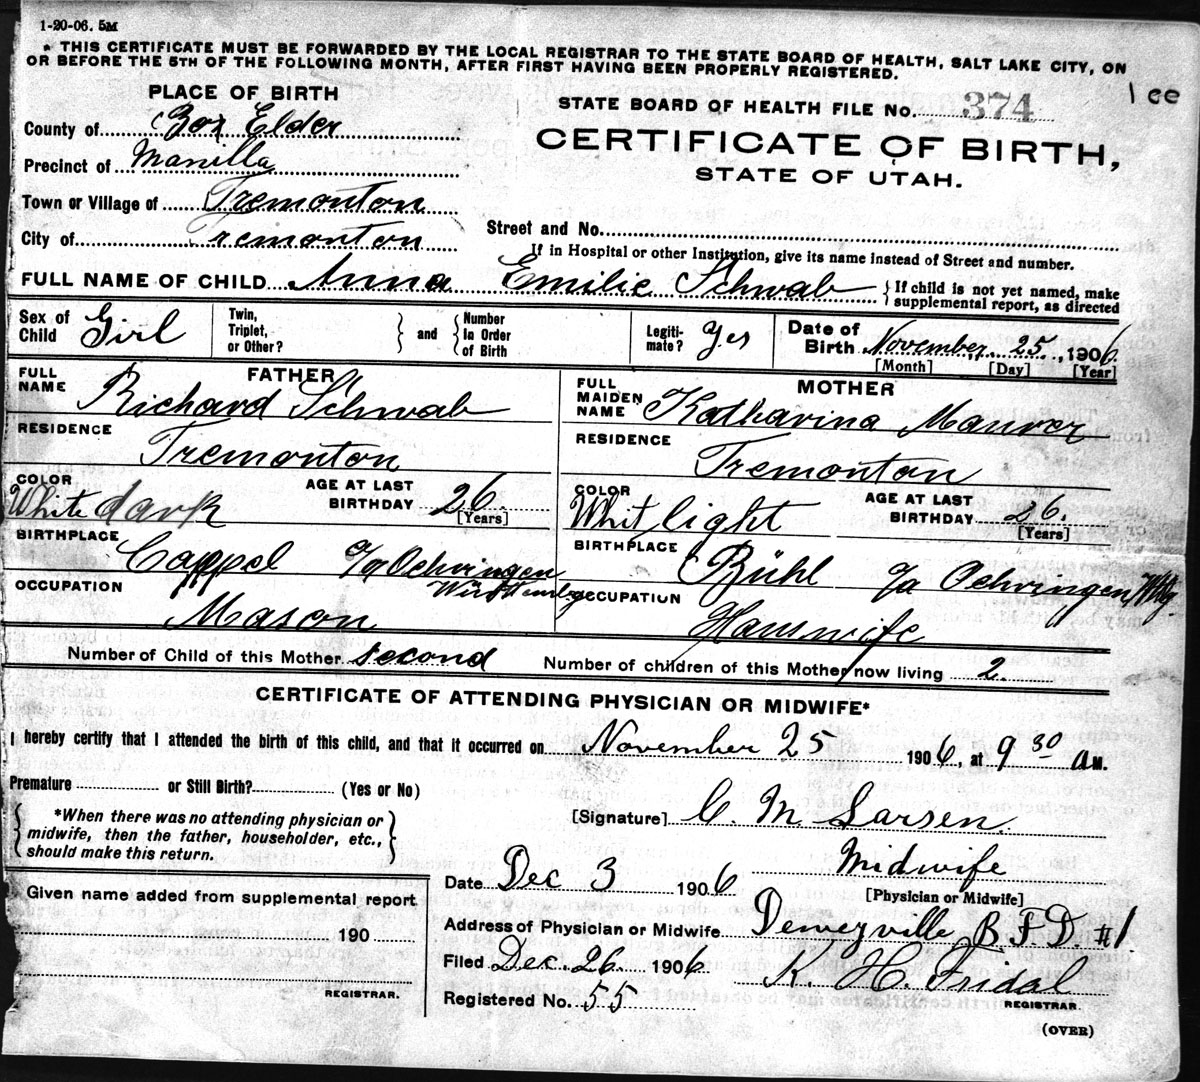 1-20-06. 5M
* THIS CERTIFICATE MUST BE FORWARDED BY THE LOCAL REGISTRAR TO THE STATE BOARD OF HEALTH, SALT LAKE CITY, ON
OR BEFORE THE 5TH OF THE FOLLOWING MONTH, AFTER FIRST HAVING BEEN PROPERLY REGISTERED.
PLACE OF BIRTH
County of Box Elder
Precinct of Manilla
Town or Village of Tremonton
City of Tremonton
STATE BOARD OF HEALTH FILE No. 374
CERTIFICATE OF BIRTH,
STATE OF UTAH.
Street and No.
If in Hospital or other Institution, give its name instead of Street and number.
FULL NAME OF CHILD Anna Emilie Schwab { If child is not yet named, make supplemental report, as directed
Sex of Child Girl Twin, Triplet, or Other? } and { Number in Order of Birth Legiti-mate? Yes Date of Birth November 25, 1906
[Month] [Day] [Year]
FATHER
FULL NAME Richard Schwab
RESIDENCE Tremonton
COLOR White dark AGE AT LAST BIRTHDAY 26 [Years]
BIRTHPLACE Cappel O/a Oehringen Württemberg
OCCUPATION Mason
MOTHER
FULL MAIDEN NAME Katharina Maurer
RESIDENCE Tremonton
COLOR Whit light AGE AT LAST BIRTHDAY 26. [Years]
BIRTHPLACE Bühl O/a Oehringen, Wttg.
OCCUPATION Hauswife
Number of Child of this Mother second Number of children of this Mother now living 2.
CERTIFICATE OF ATTENDING PHYSICIAN OR MIDWIFE*
I hereby certify that I attended the birth of this child, and that it occurred on November 25 1906, at 9 30 A M.
Premature or Still Birth? (Yes or No)
{ *When there was no attending physician or
midwife, then the father, householder, etc.,
should make this return. }
[Signature] C. M. Larsen.
Midwife
[Physician or Midwife]
Date Dec 3 1906
Address of Physician or Midwife Deweyville R F D. #1
Filed Dec. 26 1906 K. H. Fridal
REGISTRAR.
Registered No. 55
Given name added from supplemental report
190
REGISTRAR.
(OVER)